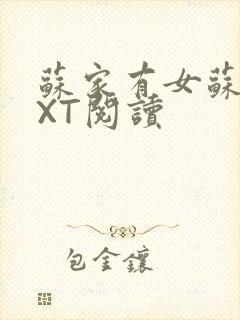 蘇家有女蘇
XT閱讀
包金鑲